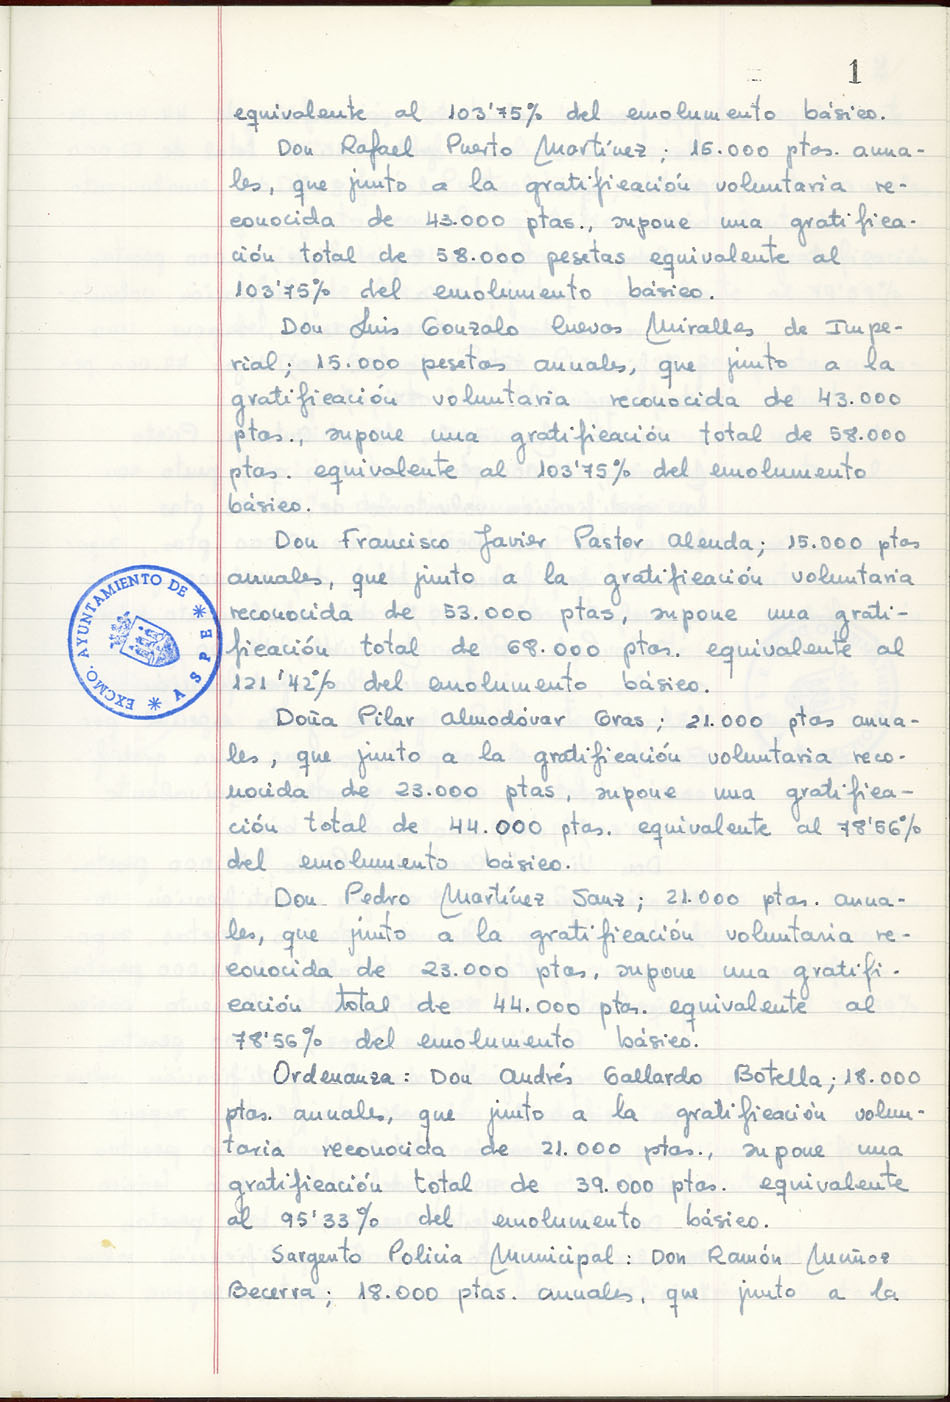 1
equivalente al 103'75% del emolumento básico.
Don Rafael Puerto Martínez; 15.000 ptas. anua-
les, que junto a la gratificación voluntaria re-
conocida de 43.000 ptas., supone una gratifica-
ción total de 58.000 pesetas equivalente al
103'75% del emolumento básico.
Don Luis Gonzalo Cuevas Miralles de Impe-
rial; 15.000 pesetas anuales, que junto a la
gratificación voluntaria reconocida de 43.000
ptas., supone una gratificación total de 58.000
ptas. equivalente al 103'75% del emolumento
básico.
Don Francisco Javier Pastor Alenda; 15.000 ptas
anuales, que junto a la gratificación voluntaria
reconocida de 53.000 ptas, supone una grati-
ficación total de 68.000 ptas. equivalente al
121'42% del emolumento básico.
Doña Pilar Almodóvar Gras; 21.000 ptas anua-
les, que junto a la gratificación voluntaria reco-
nocida de 23.000 ptas, supone una gratifica-
ción total de 44.000 ptas. equivalente al 78'56%
del emolumento básico.
Don Pedro Martínez Sanz; 21.000 ptas. anua-
les, que junto a la gratificación voluntaria re-
conocida de 23.000 ptas, supone una gratifi-
cación total de 44.000 ptas. equivalente al
78'56% del emolumento básico.
Ordenanza: Don Andrés Gallardo Botella; 18.000
ptas. anuales, que junto a la gratificación volun-
taria reconocida de 21.000 ptas., supone una
gratificación total de 39.000 ptas. equivalente
al 95'33% del emolumento básico.
Sargento Policia Municipal: Don Ramón Muñoz
Becerra; 18.000 ptas. anuales, que junto a la
EXCMO. AYUNTAMIENTO DE
* ASPE *